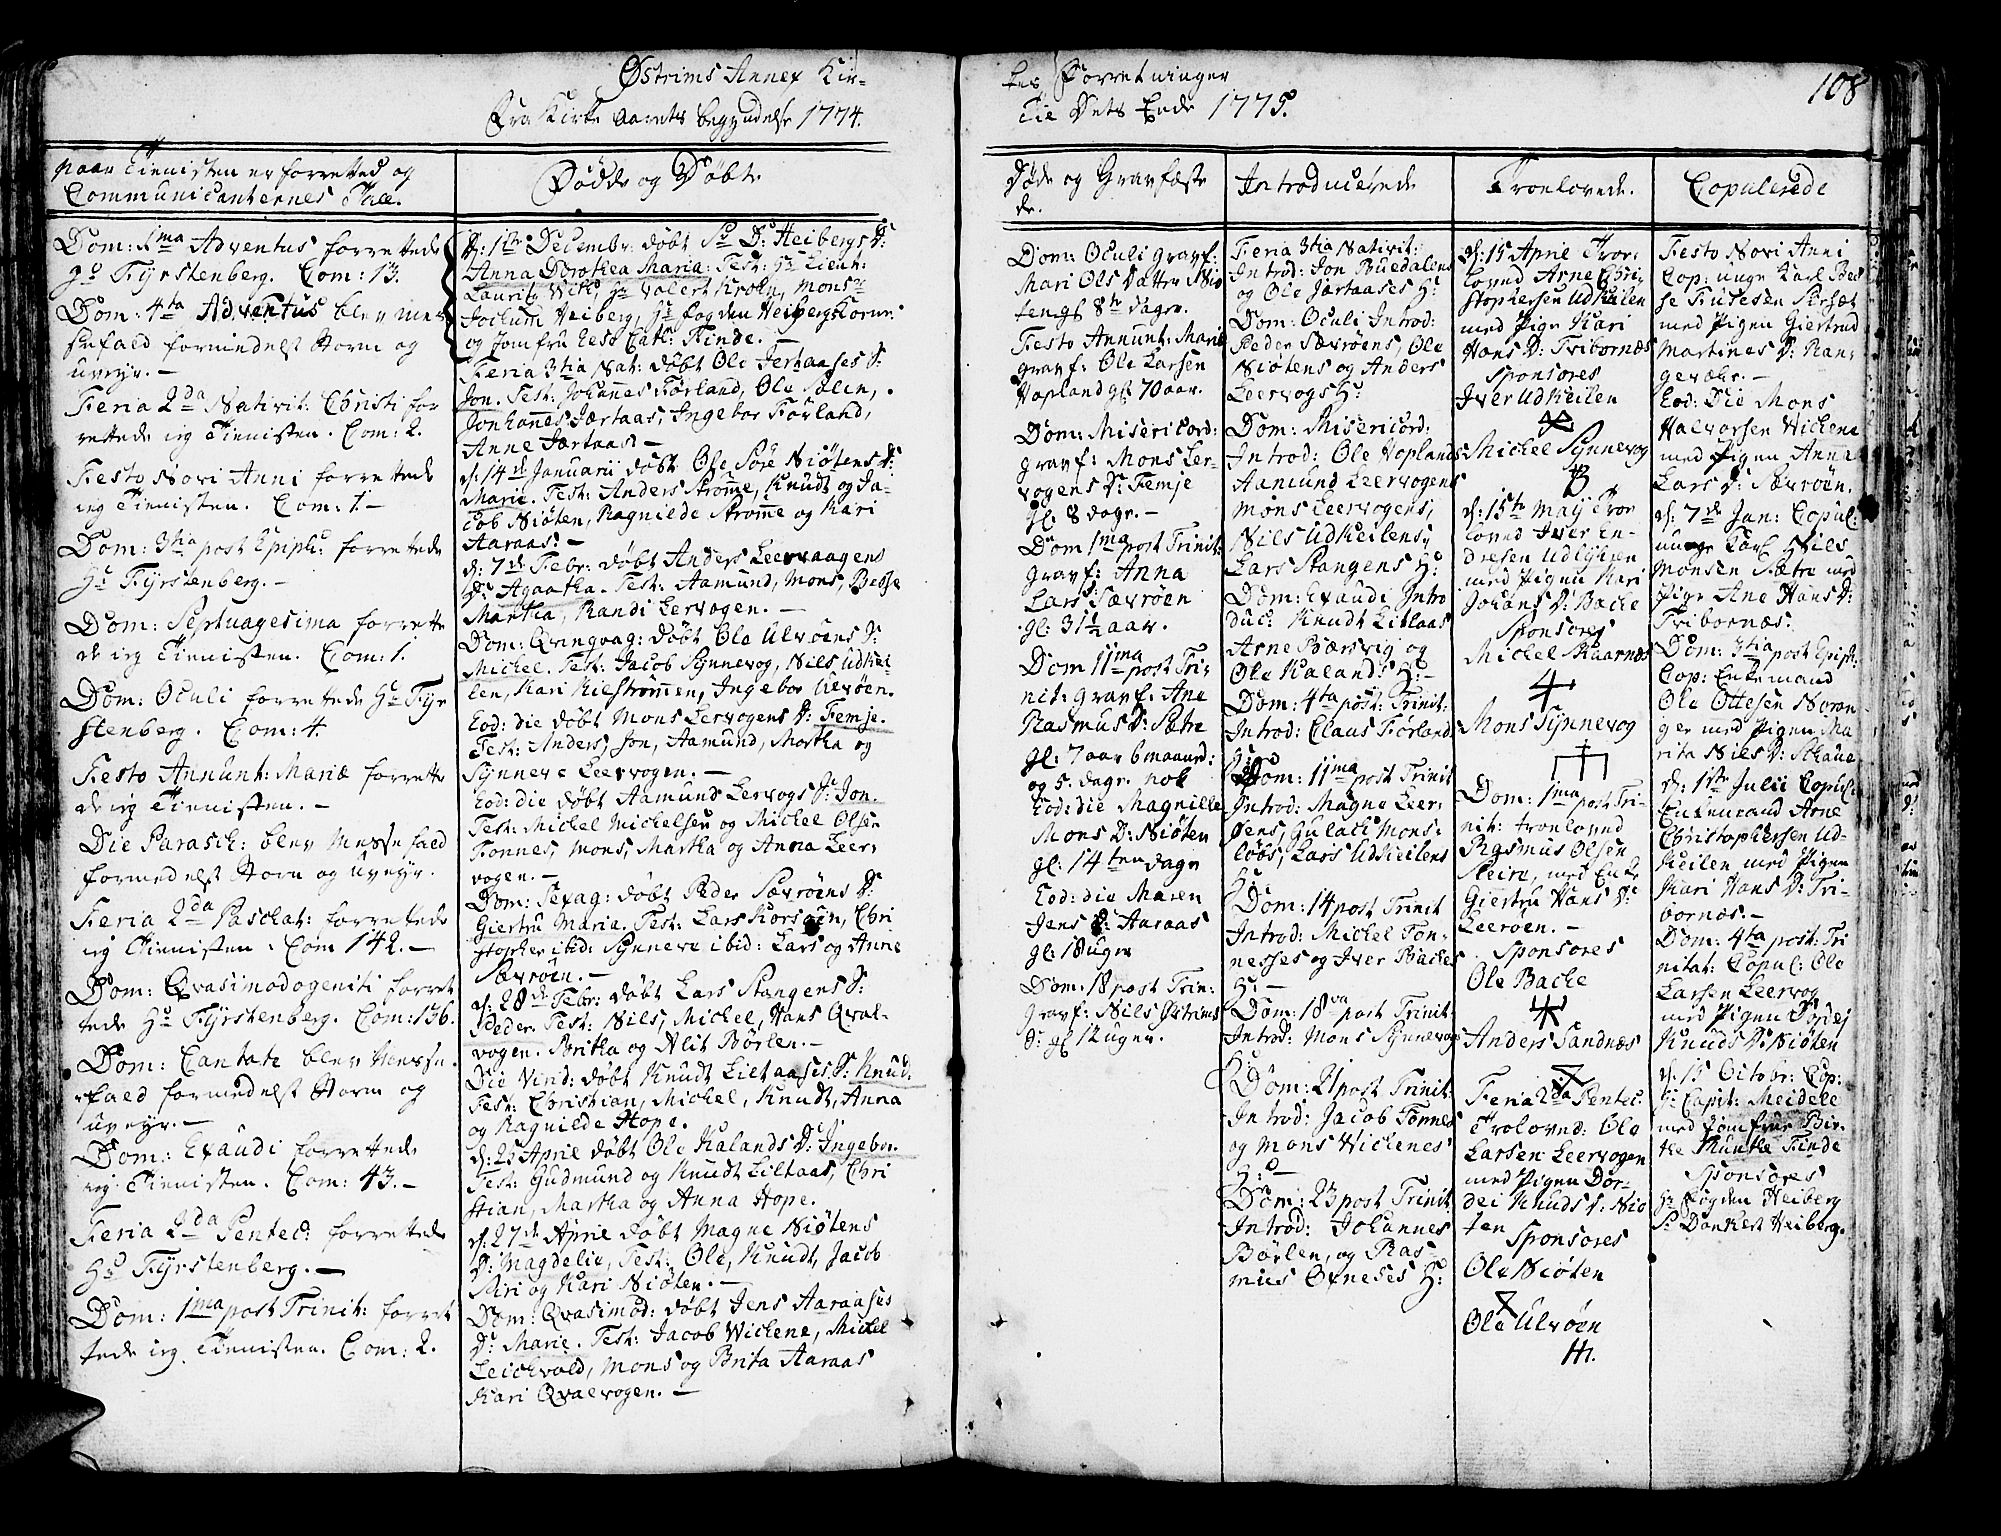 Østrims Annex Kir-
Fra Kirke Aarets begyndelse 1774.
naar Tienisten er forretted og
Communicanternes Tall.
Dom: 1ma Adventus forrettede
Hr Fyrstenberg. Com: 13.
Dom: 4ta Adventus blev mes
sefald formedelst Storm og
uveyr. -
Feria 2da Nativit: Christi for
rettede ieg Tienisten. Com: 2.
Festo Novi Anni forrettede
ieg Tienisten. Com: 1. -
Dom: 3tia post Epiph: forrettede
Hr Fyrstenberg. -
Dom: Septuagesima forrette
de ieg Tienisten. Com: 1.
Dom: Oculi forrettede Hr Fyr
stenberg. Com: 4.
Festo Annunt: Mariæ forrette
de ieg Tienisten. -
Die Parasch: blev Messefald
formedelst Storm og Uveyr.
Feria 2da Paschat: forrettede
ieg Tienisten. Com 142. -
Dom: Qvasimodogeniti forret
tede Hr Fyrstenberg. Com: 136.
Dom: Cantate blev Messe-
fald formedelst Storm og
uveyr. -
Dom: Exaudi forrettede
ieg Tienisten. Com: 43. -
Feria 2da Pentec: forrettede
Hr Fyrstenberg. -
Dom: 1ma post Trinit: forret
tede ieg Tienisten. Com: 2.
Fødde og Døbte
d: 1ste Decembr: døbt Sr D: Heibergs D:
Anna Dorothea Maria: Test: Hr Lieut:
Lauritz Wilh, Hr Valert Krohn, Monsr
Jochum Heiberg, Hr fogden Heibergs
og Jomfru Cath: Finde. -
Feria 3tia Nat: døbt Ole Jertaases S:
Jon. Test: Johannes Førland, Ole Solen,
Johannes Jærtaas, Ingebor Førland,
Anne Jærtaas -
d: 14de Januarii døbt Ole Søre Niøtens D:
Marie. Test: Anders Strømme, Knudt og Ja-
cob Niøten, Ragnilde Strømme og Kari
Aaraas: -
d: 7de Febr: døbt Anders Leervaagens
D: Agaatha. Test: Aamund, Mons, Besse
Martha, Randi Lervogen. -
Dom: Qvinqvag: døbt Ole Ulvøens S:
Michel. Test: Jacob Synnevog, Nils Udkei-
len, Kari Kilstrømmen, Ingebor Ulvøen.
Eod: die døbt Mons Lervogens D: Femje.
Test: Anders, Jon, Aamund, Martha og
Synneve Leervogen. -
Eod: die døbt Aamund Lervogs S: Jon.
Test: Michel Michelsen og Michel Olsen
Fonnes, Mons, Martha og Anna Leer-
vogen. -
Dom: Sexag: døbt Peder Sævrøens D:
Giertru Maria. Test: Lars Korsøin, Chri
stopher ibid: Synneve ibid: Lars og Anne
Sævrøen. -
d: 28de Febr: døbt Lars Stangens S:
Peder. Test: Nils, Michel, Hans Qval-
vogen. Britha og Alit Børlen. -
Die Virid: døbt Knudt Liltaases S: Knud.
Test: Christian, Michel, Knudt, Anna
og Ragnilde Hope.
d: 25 April døbt Ole Kalands D: Ingebor.
Test: Gudmund og Knudt Liltaas, Chri
stian, Martha og Anna Hope.
d: 27de April døbt Magne Niøtens
D: Magdelie, Test: Ole, Knudt, Jacob
Siri og Kari Niøten. -
Dom: Qvasimod: døbt Jens Aaraases
D: Marie. Test: Jacob Wichene, Michel
Leichvold, Mons og Brita Aaraas
Kari Qvalvogen. -
kes Forretninger
Til Dets Ende 1775.
108
Døde og Gravfæste
de.
Dom: Oculi gravf:
Mari Ols Datter Niø
ten gl 8te dage.
Festo Annunt: Mariæ
gravf: Ole Larsen
Hopland gl 70 aar.
Dom: Misericord:
gravf: Mons Ler-
vogens D: Femje
gl: 8 dage. -
Dom 1ma post Trinit:
gravf: Anna
Lars Sævrøen
gl: 31 1/2 aar.
Dom 11ma post Tri-
nit: gravf: Ane
Rasmus D: Sætre
gl: 7 aar 6 maaned:
og 5. dage. nok
Eod: die Magnille
Mons D: Niøten
gl: 14ten dage
Eod: die Maren
Jens D: Aaraas
gl: 18 uger
Dom: 18 post Trin:
Gravf: Nils Østrims
D: gl 12 uger.
Introducerede
Feria 3tia Nativit:
Introd: Jon Buedalens
og Ole Jærtaases H:
Dom: Oculi Introd:
Peder Sævrøens, Ole
Niøtens og Anders
Leervogs H:
Dom: Misericord:
Introd: Ole Hoplands
Aamund Leervogens
Mons Leervogens,
Nils Udkeilens,
Lars Stangens H:
Dom: Exaudi Intro
duc: Knudt Litlaas
Arne Bærsvig og
Ole Kaland: H: -
Dom: 4ta post: Trinit:
Introd: Claus Førland
H:
Dom: 11ma post Trinit
Introd: Magne Leer-
øens, Gulach Mons-
løbs, Lars Udkeilens
H:
Dom: 14 post Trinit
Introd: Michel Fon-
nesses og Iver Baches
H: -
Dom: 18va post Trinit:
Introd: Mons Synnevogs
H:
Dom: 21 post Trinit:
Introd: Jacob Fonnes
og Mons Wichenes
H: -
Dom: 23 post Trinit
Introd: Johannes
Børlen, og Ras-
mus Øxneses H:
Troelovede.
d: 15 April Troe-
loved Arne Chri-
stophersen Udkeilen
med Pige Kari
Hans D: Tribornæs
Sponsores
Iver Udkeilen
Michel Synnevog
d: 15te Maij Troe
loved Iver En-
dresen
med Pigen Kari
Johans D: Bache
Sponsores
Michel Skaarnæs
Mons Synnevog
Dom: 1ma post Tri-
nit: troeloved
Rasmus Olsen
Sleire, med Enke
Giertru Hans D:
Leerøen. -
Sponsores
Ole Bache
Anders Sandnæs
Feria 2da Pentec:
Troloved: Ole
Larsen Leervogen
med Pigen Dor-
dei Knuds D: Niø
ten Sponsores
Ole Niøten
Ole Ulvøen
Copulerede
Festo Novi Anni
Cop: unge Karl Bes
se
med Pigen Giertrud
Martines D: Ran-
Eod: Die Mons
Halvorsen Wichene
med Pigen Anna
Lars D: Sævrøen.
d: 7de Jan: Copul:
unge Karl Nils
Monsen Sætre med
Pige Ane Hans D:
Tribornæs.
Dom: 3tia post Epiph:
Cop: Enkemand
Ole Ottesen Noron-
ger med Pigen Ma
rita Nils D:
d: 1ste Julii Copul:
Enkemand Arne
Christophersen Ud-
keilen med Pigen
Kari Hans D: Tri-
bornæs. -
Dom: 4ta post: Tri
nitat: Copul: Ole
Larsen Leervog
med Pigen Dordej
Knuds D: Niøten
d: 15 Octobr: Cop:
Hr Capit: Meidell
med Jomfrue Bir-
te Munthe Finde
Sponsores
Hr Fogden Heiberg
Sr Danckert Heiberg.